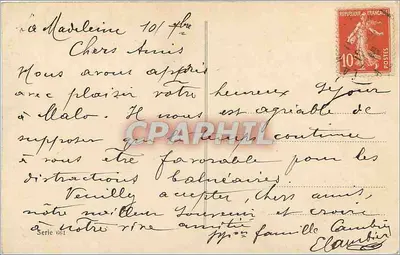 La Madeleine 10/ bre
Chers Amis
Nous avons appris
avec plaisir votre heureux séjour
à Malo. Il nous est agréable de
supposer que le temps continue
à vous être favorable pour les
distractions balnéaires.
Veuillez accepter, chers amis,
nôtre meilleur souvenir et croire
à notre vive amitié
ppion famille Cambier
ECambier
Serie 661
REPUBLIQUE FRANCAISE
10c
POSTES
CPARHIL